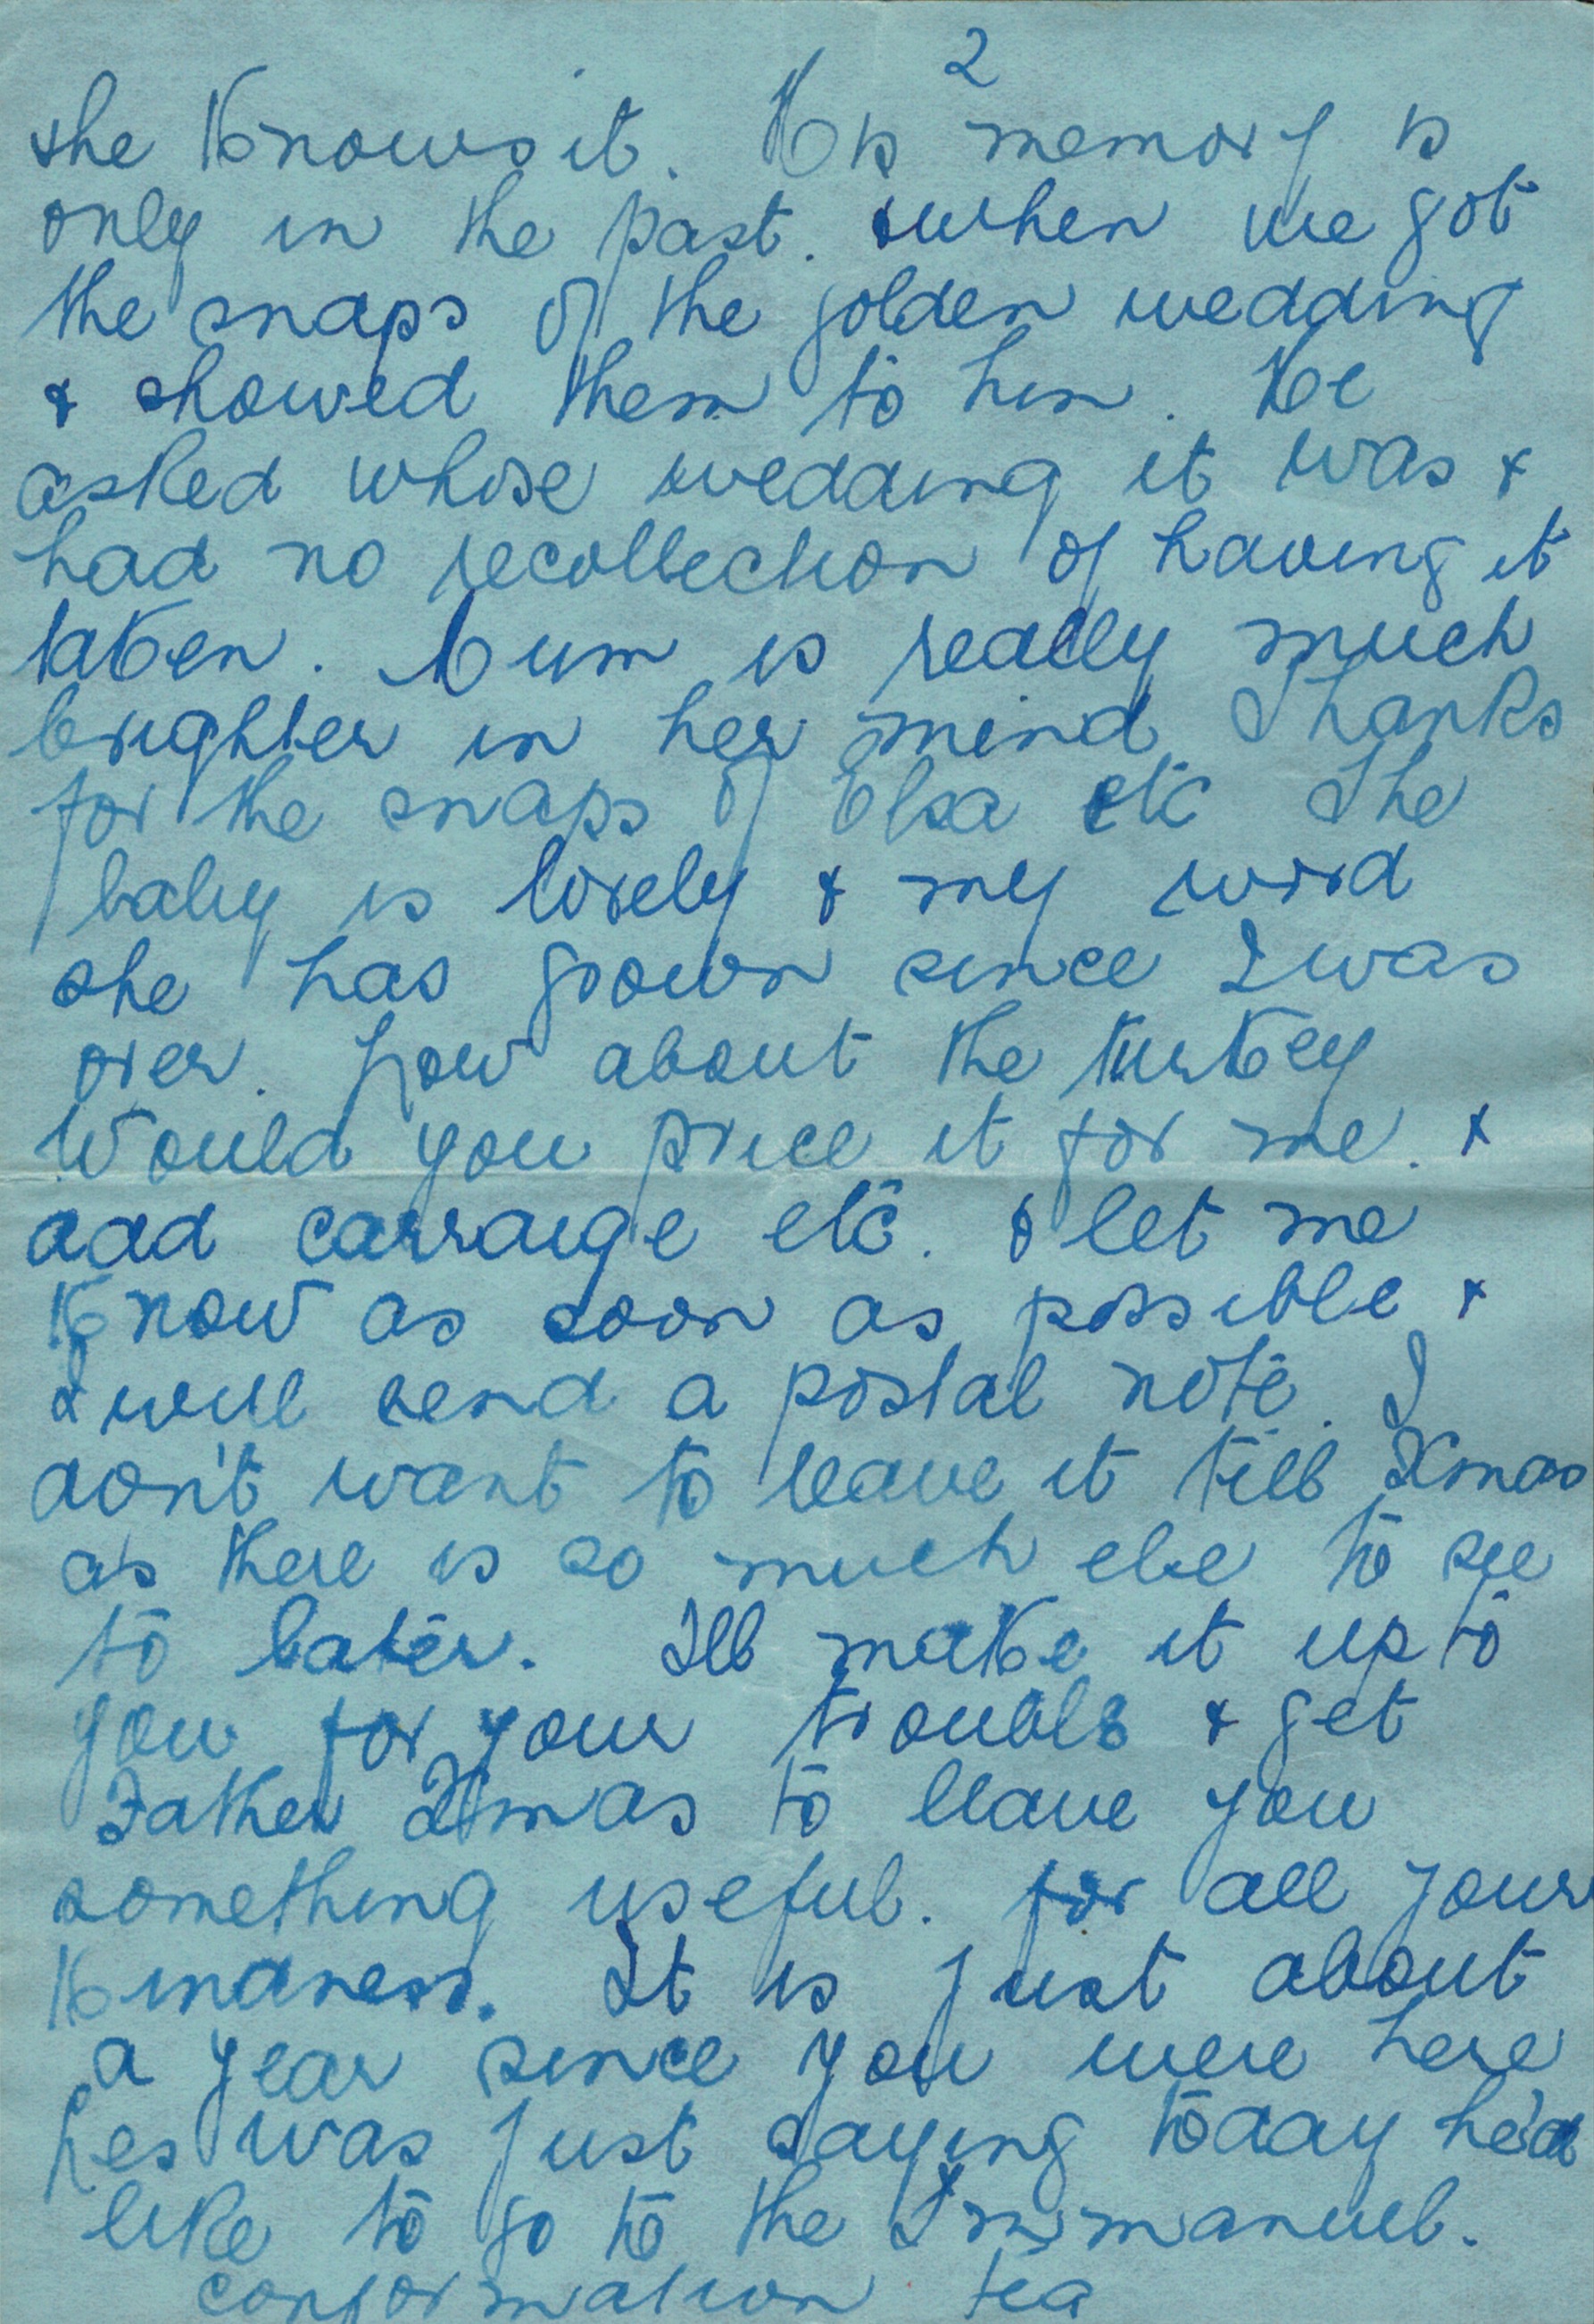 2
she knows it. His memory is
only in the past. when we got
the snaps of the golden wedding
& showed them to him. He
asked whose wedding it was &
had no recollection of having it
taken. Mum is really much
brighter in her mind Thanks
for the snaps of Elsa etc The
baby is lovely & my word
she has grown since I was
over. How about the turkey
Would you price it for me. &
add carraige etc. & let me
know as soon as possible &
I will send a postal note. I
don't want to leave it till Xmas
as there is so much else to see
to later. Ill make it up to
you for your trouble & get
Father Xmas to leave you
something useful. for all your
kindness. It is just about
a year since you were here
Les was just saying today he'd
like to go to the Immanuel.
conformation tea